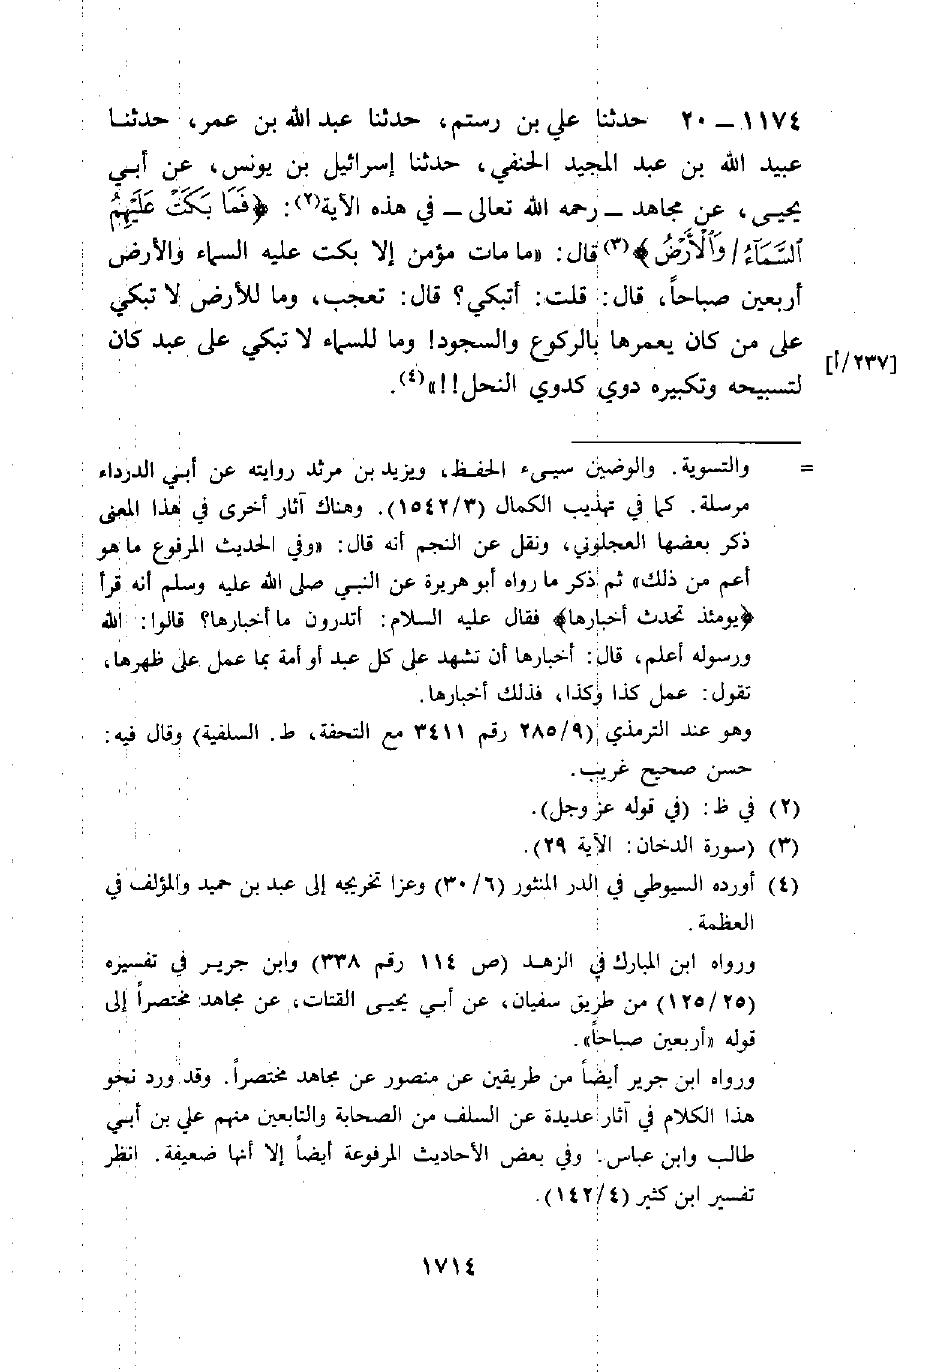 ١١٧٤ ـ ٢٠ حدثنا علي بن رستم، حدثنا عبد الله بن عمر، حدثنا
عبيد الله بن عبد المجيد الحنفي، حدثنا إسرائيل بن يونس، عن أبي
يحيى، عن مجاهد ـ رحمه الله تعالى ـ في هذه الآية(٢): ﴿فَمَا بَكَتْ عَلَيْهِمُ
السَّمَآءُ/ وَٱلْأَرْضُ﴾(٣) قال: «ما مات مؤمن إلا بكت عليه السماء والأرض
أربعين صباحاً، قال: قلت: أتبكي؟ قال: تعجب، وما للأرض لا تبكي
على من كان يعمرها بالركوع والسجود! وما للسماء لا تبكي على عبد كان
[٢٣٧/أ]
لتسبيحه وتكبيره دوي كدوي النحل!!»(٤).
= والتسوية. والوضين سيىء الحفظ، ويزيد بن مرثد روايته عن أبي الدرداء
مرسلة. كما في تهذيب الكمال (١٥٤٢/٣). وهناك آثار أخرى في هذا المعنى
ذكر بعضها العجلوني، ونقل عن النجم أنه قال: «وفي الحديث المرفوع ما هو
أعم من ذلك» ثم ذكر ما رواه أبو هريرة عن النبي صلى الله عليه وسلم أنه قرأ
﴿يومئذ تحدث أخبارها﴾ فقال عليه السلام: أتدرون ما أخبارها؟ قالوا: الله
ورسوله أعلم، قال: أخبارها أن تشهد على كل عبد أو أمة بما عمل على ظهرها،
تقول: عمل كذا وكذا، فذلك أخبارها.
وهو عند الترمذي (٢٨٥/٩ رقم ٣٤١١ مع التحفة، ط. السلفية) وقال فيه:
حسن صحيح غريب.
(٢) في ظ: (في قوله عز وجل).
(٣) (سورة الدخان: الآية ٢٩).
(٤) أورده السيوطي في الدر المنثور (٣٠/٦) وعزا تخريجه إلى عبد بن حميد والمؤلف في
العظمة.
ورواه ابن المبارك في الزهد (ص ١١٤ رقم ٣٣٨) وابن جرير في تفسيره
(١٢٥/٢٥) من طريق سفيان، عن أبي يحيى القتات، عن مجاهد مختصراً إلى
قوله «أربعين صباحاً».
ورواه ابن جرير أيضاً من طريقين عن منصور عن مجاهد مختصراً. وقد ورد نحو
هذا الكلام في آثار عديدة عن السلف من الصحابة والتابعين منهم علي بن أبي
طالب وابن عباس. وفي بعض الأحاديث المرفوعة أيضاً إلا أنها ضعيفة. انظر
تفسير ابن كثير (١٤٢/٤).
١٧١٤